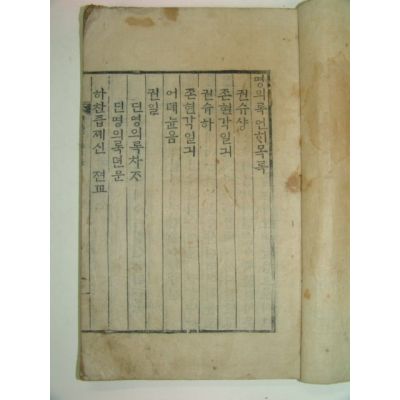 명의록언ᄒᆡ목록
권슈샹
존현각일긔
권슈하
존현각일긔
어뎨눈음
권일
딘명의록차ᄌᆞ
딘명의록뎐문
하찬즙졔신 젼교